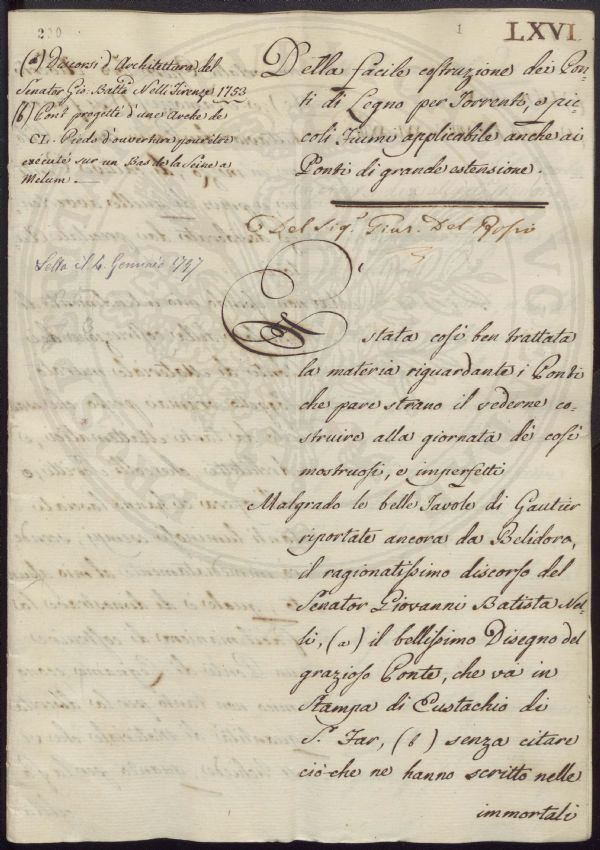 200
1
LXVI
(a) Discorsi d'Architettura del
Senator Gio. Batta Nelli Firenze 1753
(b) Pont progetté d'une Arche de
CL. Pieds d'ouverture pour être
exécuté sur un Bas de la Seine a
Melum.
Letta il 4. Gennaio 1797
Della facile costruzione dei Pon-
ti di Legno per Torrenti, e pic-
coli Fiumi applicabile anche ai
Ponti di grande estensione.
Del Sig.r Gius. Del Rosso
E' stata così ben trattata
la materia riguardante i Ponti
che pare strano il vederne co-
struire alla giornata de' così
mostruosi, e imperfetti
Malgrado le belle Tavole di Gautier
riportate ancora da Belidoro,
il ragionatissimo discorso del
Senator Giovanni Batista Nel-
li, (a) il bellissimo Disegno del
grazioso Ponte, che và in
Stampa di Eustachio di
S.t Far, (b) senza citare
ciò che ne hanno scritto nelle
immortali